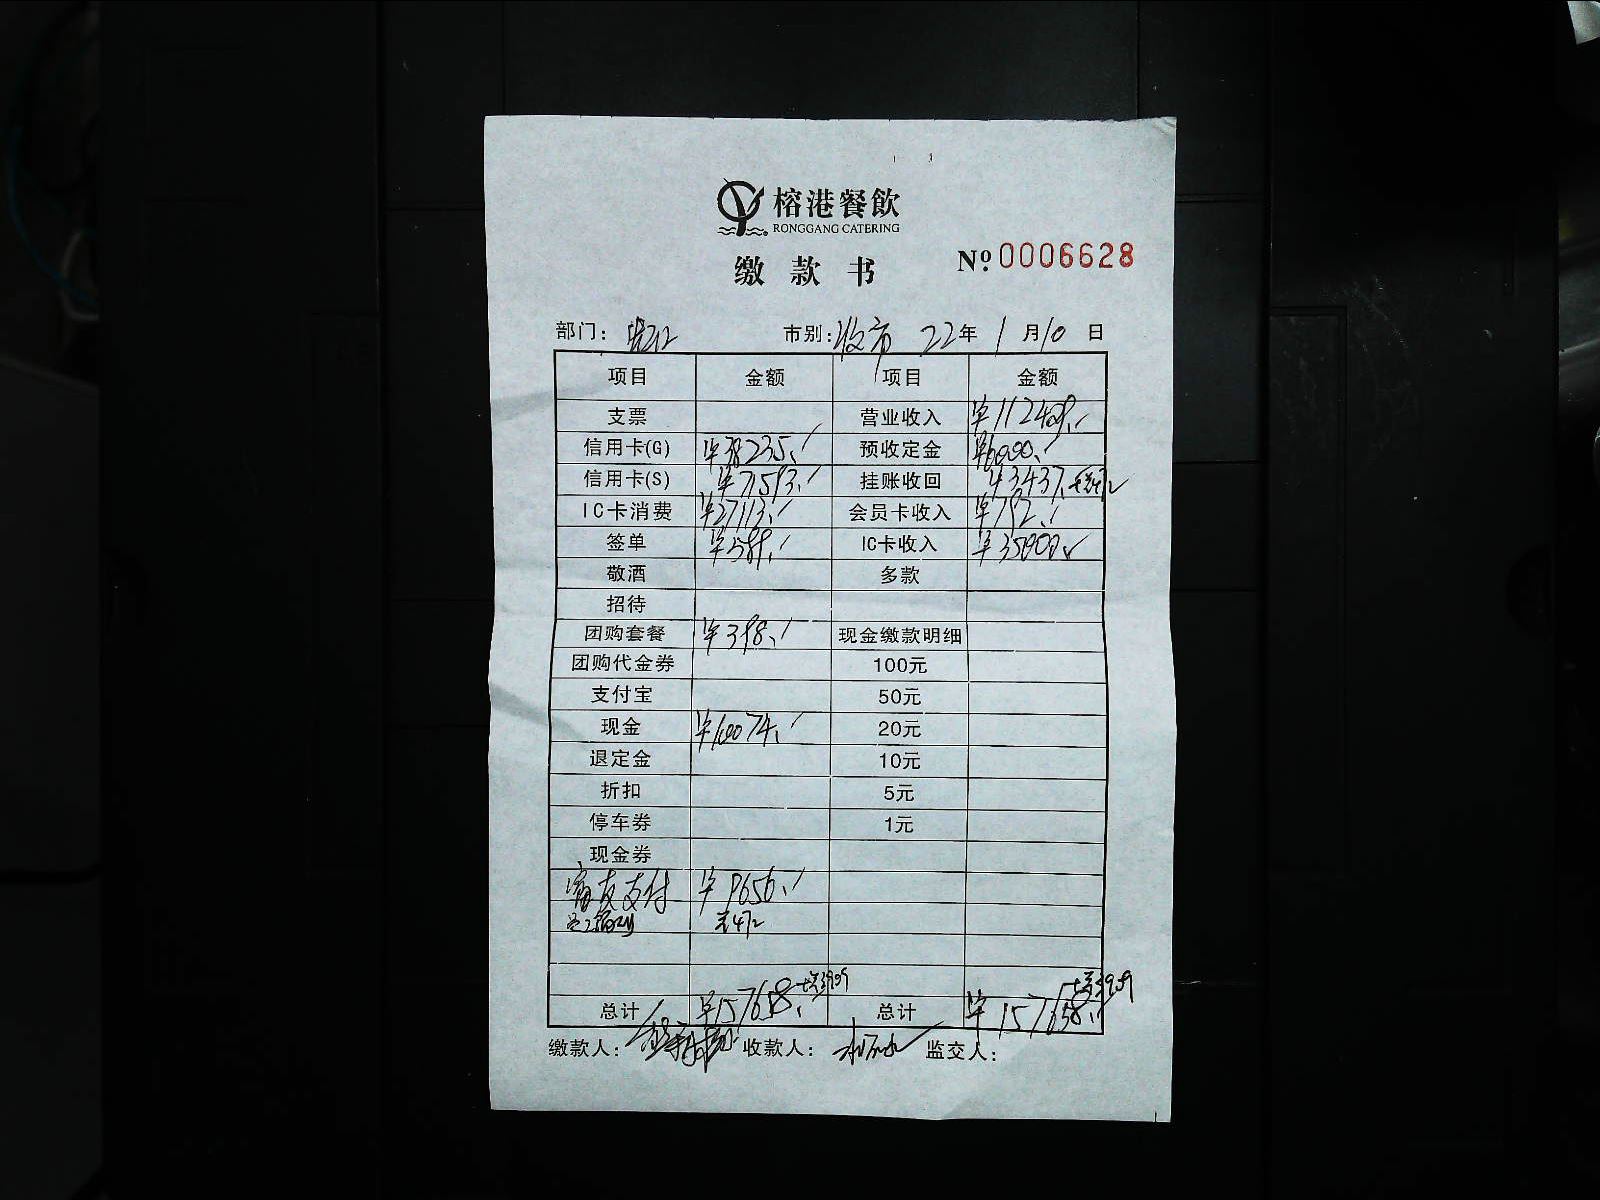 榕港餐飲
RONGGANG CATERING
缴款书 Nº 0006628
部门: 市别: 收市 22年 1月10日
项目 金额 项目 金额
支票 营业收入 ¥112409.
信用卡(G) ¥38235. 预收定金 ¥6000.
信用卡(S) ¥71593. 挂账收回 ¥3437.
IC卡消费 ¥27113. 会员卡收入 ¥792.
签单 ¥589. IC卡收入 ¥35000.
敬酒 多款
招待
团购套餐 ¥398. 现金缴款明细
团购代金券 100元
支付宝 50元
现金 ¥10074. 20元
退定金 10元
折扣 5元
停车券 1元
现金券
富友支付 ¥9656.
总计 ¥157658. 总计 ¥157658.
缴款人: 收款人: 监交人: